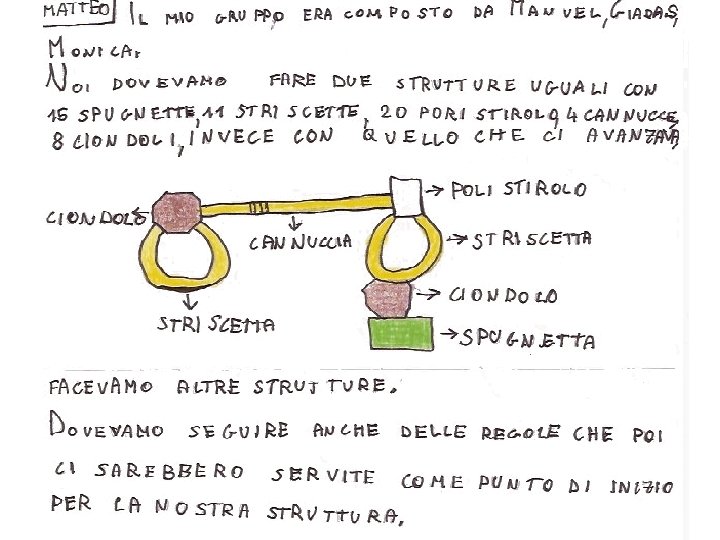 MATTEO IL MIO GRUPPO ERA COMPOSTO DA MANUEL, GIADA S,
MONICA.
NOI DOVEVAMO FARE DUE STRUTTURE UGUALI CON
16 SPUGNETTE, 11 STRISCETTE, 20 PORI STIROLO, 4 CANNUCCE,
8 CIONDOLI, INVECE CON QUELLO CHE CI AVANZAVA,
CIONDOLO
POLISTIROLO
CANNUCCIA
STRISCETTA
CIONDOLO
STRISCETTA
SPUGNETTA
FACEVAMO ALTRE STRUTTURE.
DOVEVAMO SEGUIRE ANCHE DELLE REGOLE CHE POI
CI SAREBBERO SERVITE COME PUNTO DI INIZIO
PER LA NOSTRA STRUTTURA.